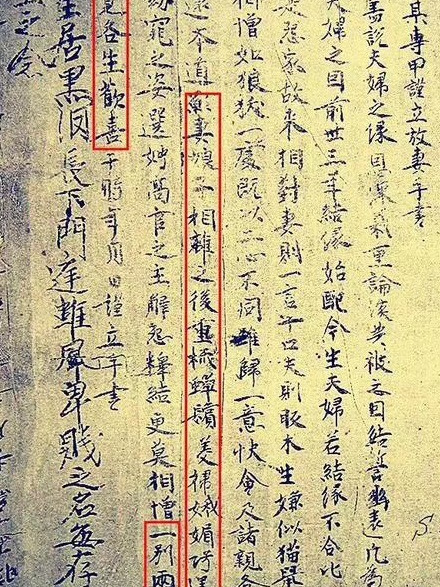 S.
某專甲謹立放妻手書
蓋說夫婦之緣恩深義重論談共被之因結誓幽遠凡為
夫婦之因前世三年結緣始配今生夫婦若結緣不合比
是怨家故來相對妻則一言十口夫則販木生嫌似猫鼠
相憎如狼一處既以二心不同難歸一意快會及諸親各
還本道願妻娘子相離之後重梳蟬鬢美掃娥媚巧逞
窕之姿選娉高官之主解怨釋結更莫相憎一別兩
寬各生歡喜于時年月日謹立手書
生居黑長下門庭雖風卑賤之名每存
之念